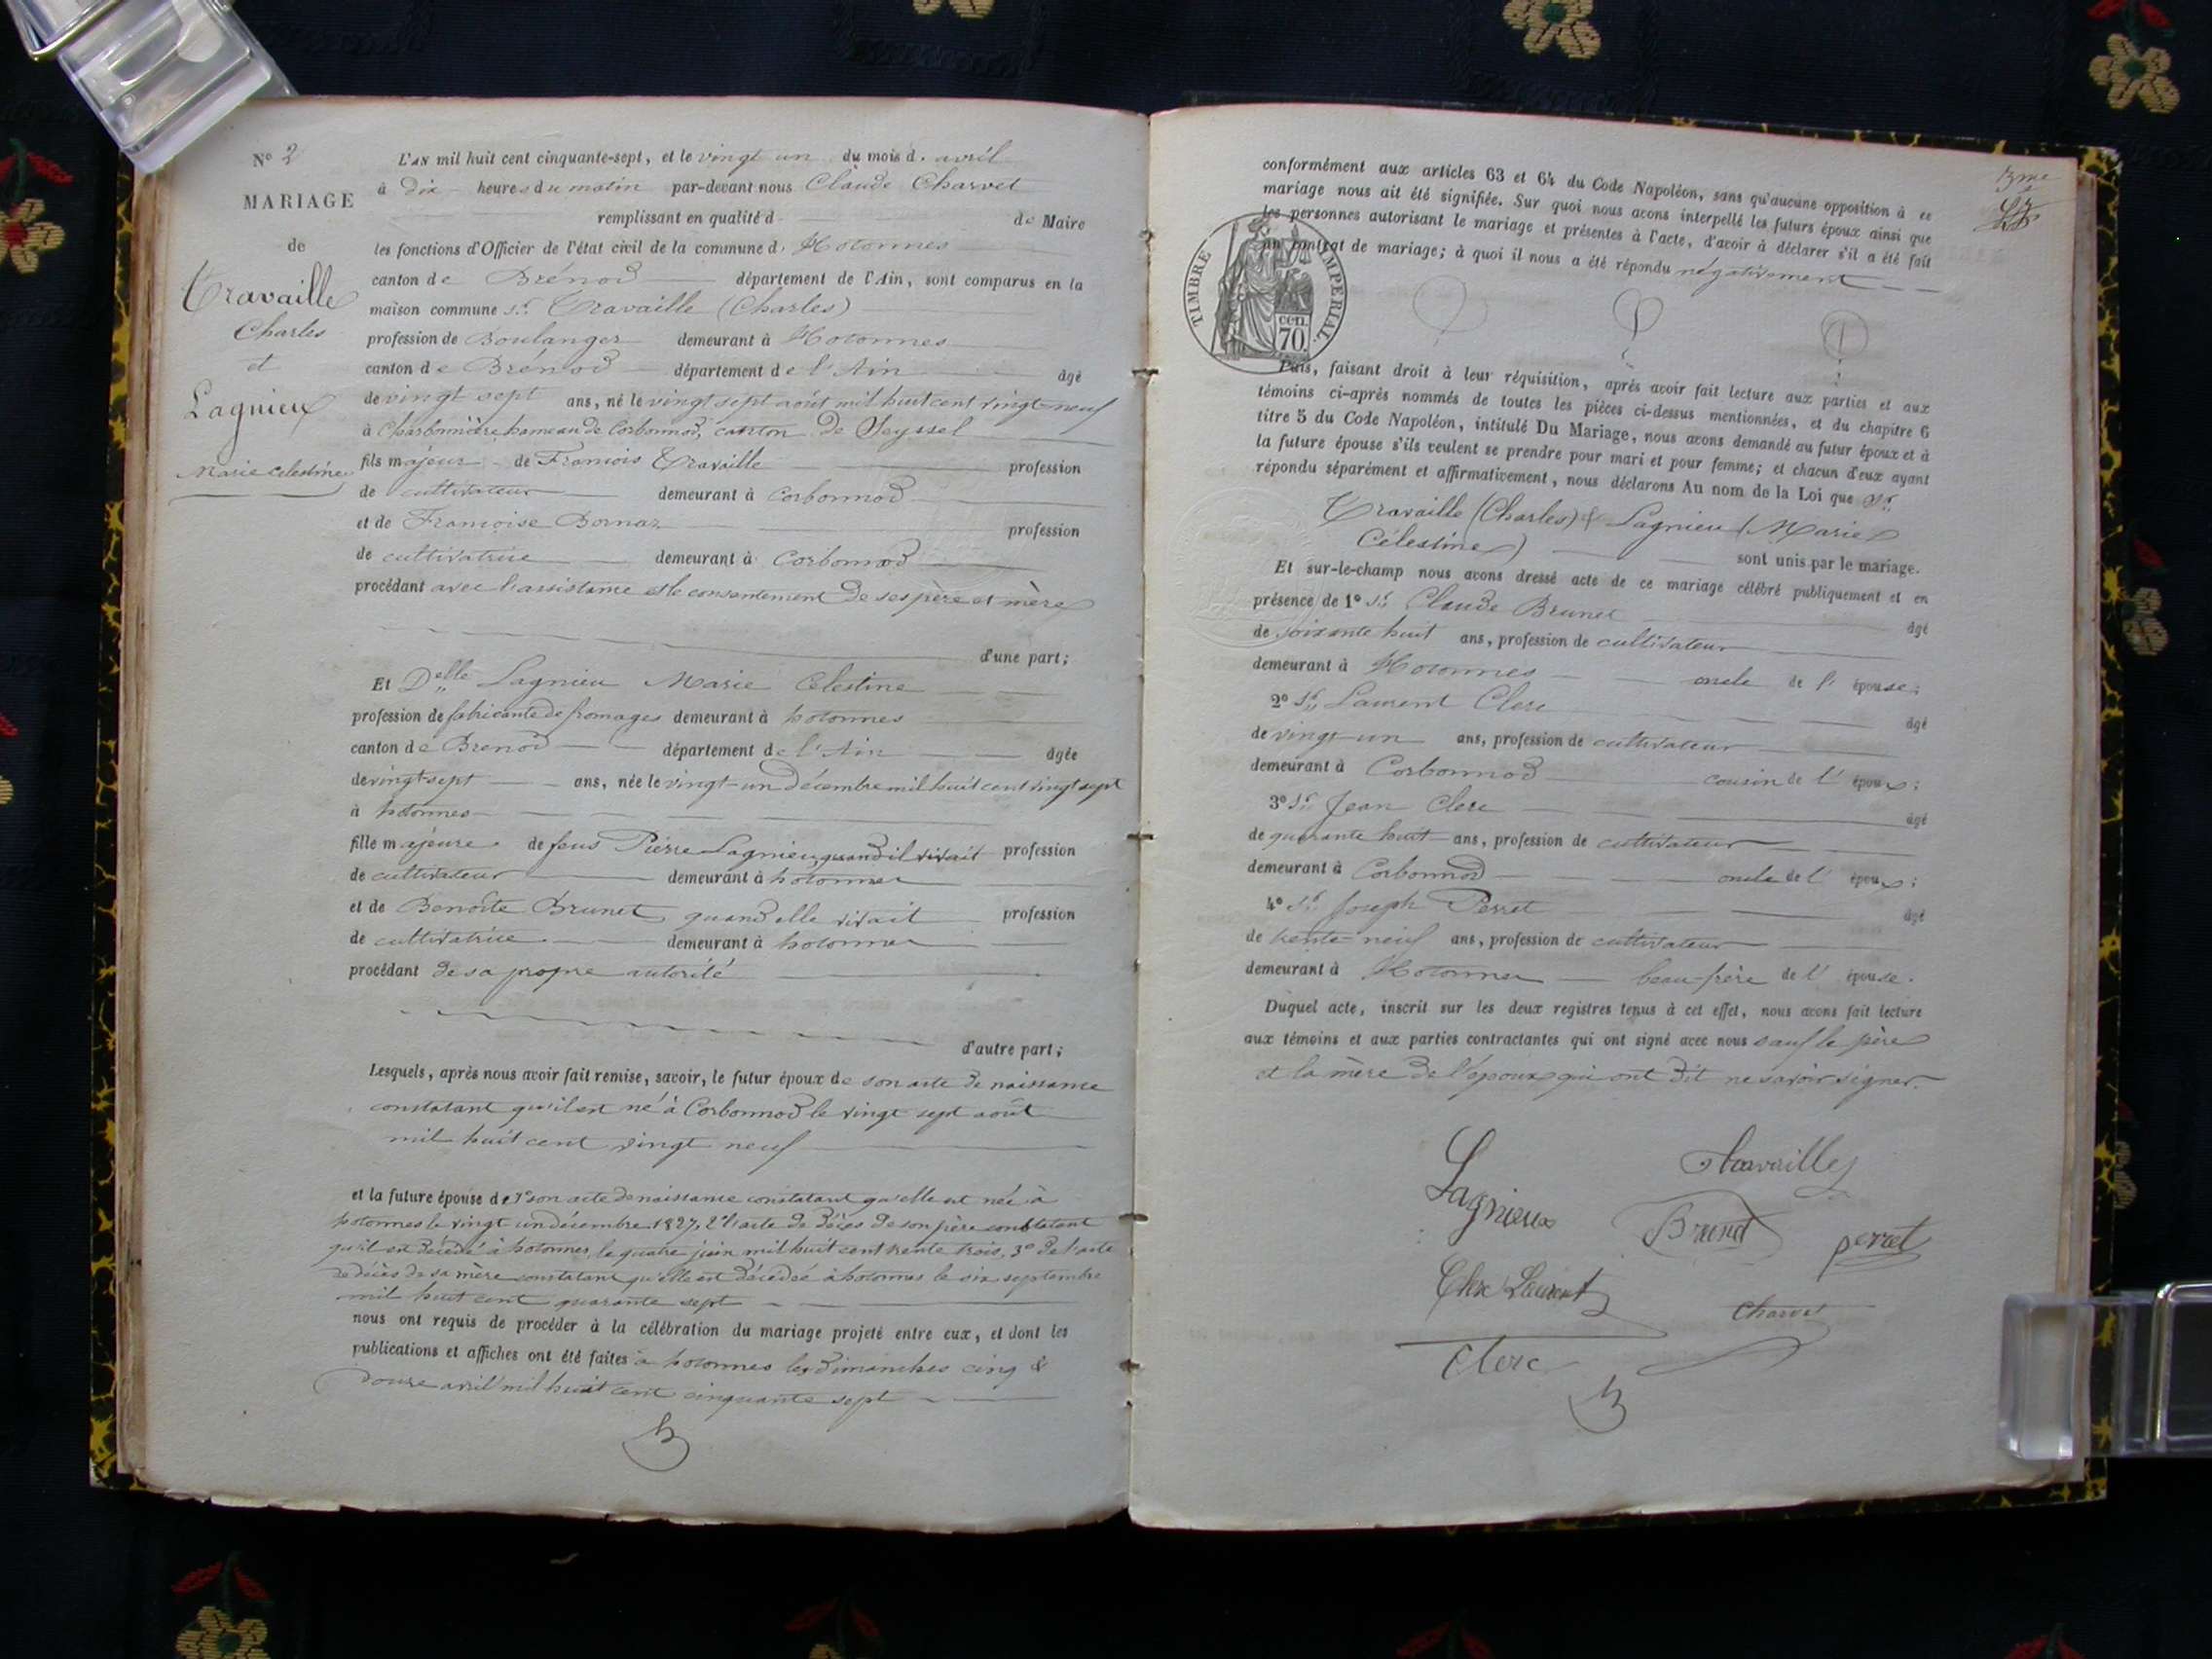 N° 2
MARIAGE
de
Travaille
Charles
et
Lagnieu
Marie Célestine
L'AN mil huit cent cinquante-sept, et le vingt un du mois d. avril
à dix heures du matin par-devant nous Claude Charvet
remplissant en qualité d de Maire
les fonctions d'Officier de l'état civil de la commune d. Hotonnes
canton de Brénod département de l'Ain, sont comparus en la
maison commune Sr. Travaille (Charles)
profession de Boulanger demeurant à Hotonnes
canton de Brénod département de l'Ain âgé
de vingt sept ans, né le vingt sept août mil huit cent vingt neuf
à Charbonnière hameau de Corbonnod, canton de Seyssel
fils majeur de François Travaille profession
de cultivateur demeurant à Corbonnod
et de Françoise Bornaz profession
de cultivatrice demeurant à Corbonnod
procédant avec l'assistance et le consentement de ses père et mère
d'une part;
Et Delle Lagnieu Marie Celestine
profession de fabricante de fromages demeurant à hotonnes
canton de Brenod département de l'Ain âgée
de vingt sept ans, née le vingt-un décembre mil huit cent vingt sept
à hotonnes
fille majeure de feus Pierre Lagnieu, quand il vivait profession
de cultivateur demeurant à hotonnes
et de Benoite Brunet quand elle vivait profession
de cultivatrice demeurant à hotonnes
procédant de sa propre autorité
d'autre part;
Lesquels, après nous avoir fait remise, savoir, le futur époux de son acte de naissance
constatant qu'il est né à Corbonnod le vingt sept août
mil huit cent vingt neuf
et la future épouse de 1° son acte de naissance constatant qu'elle est née à
hotonnes le vingt un décembre 1827, 2° l'acte de décès de son père constatant
qu'il est décédé à hotonnes, le quatre juin mil huit cent trente trois, 3° de l'acte
de décès de sa mère constatant qu'elle est décédée à hotonnes le six septembre
mil huit cent quarante sept
nous ont requis de procéder à la célébration du mariage projeté entre eux, et dont les
publications et affiches ont été faites à hotonnes les dimanches cinq &
douze avril mil huit cent cinquante sept
conformément aux articles 63 et 64 du Code Napoléon, sans qu'aucune opposition à ce
mariage nous ait été signifiée. Sur quoi nous avons interpellé les futurs époux ainsi que
les personnes autorisant le mariage et présentes à l'acte, d'avoir à déclarer s'il a été fait
un contrat de mariage; à quoi il nous a été répondu négativement
TIMBRE IMPERIAL
cen.
70.
Puis, faisant droit à leur réquisition, après avoir fait lecture aux parties et aux
témoins ci-après nommés de toutes les pièces ci-dessus mentionnées, et du chapitre 6
titre 5 du Code Napoléon, intitulé Du Mariage, nous avons demandé au futur époux et à
la future épouse s'ils veulent se prendre pour mari et pour femme; et chacun d'eux ayant
répondu séparément et affirmativement, nous déclarons Au nom de la Loi que Sr.
Travaille (Charles) & Lagnieu (Marie
Célestine) sont unis par le mariage.
Et sur-le-champ nous avons dressé acte de ce mariage célébré publiquement et en
présence de 1° Sr. Claude Brunet âgé
de soixante huit ans, profession de cultivateur
demeurant à Hotonnes oncle de l'épouse;
2° Sr. Laurent Clerc âgé
de vingt-un ans, profession de cultivateur
demeurant à Corbonnod cousin de l'époux;
3° Sr. Jean Clerc âgé
de quarante huit ans, profession de cultivateur
demeurant à Corbonnod oncle de l'époux;
4° Sr. Joseph Perret âgé
de trente-neuf ans, profession de cultivateur
demeurant à Hotonnes beau-frère de l'épouse.
Duquel acte, inscrit sur les deux registres tenus à cet effet, nous avons fait lecture
aux témoins et aux parties contractantes qui ont signé avec nous sauf le père
et la mère de l'époux qui ont dit ne savoir signer.
Lagnieux
Travaille
Brunet
perret
Clerc Laurent
Charvet
Clerc